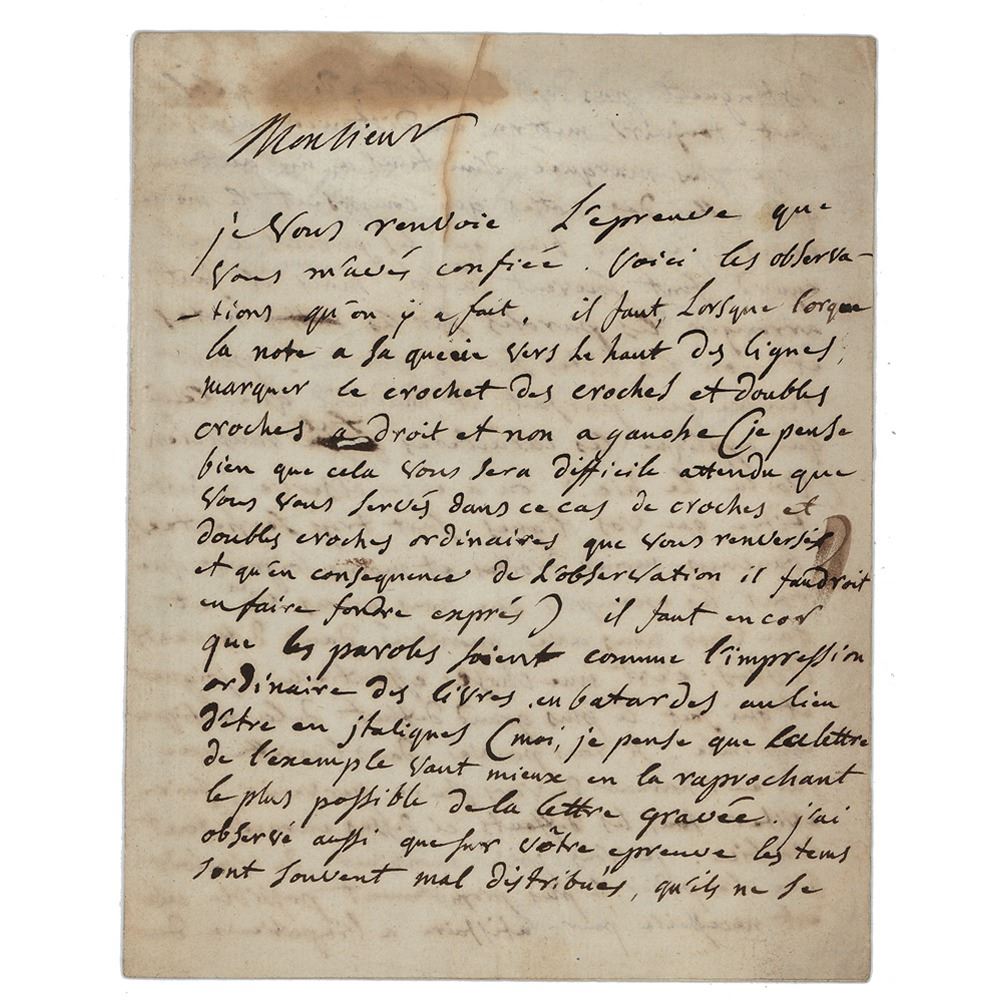 Monsieur
je vous renvoie L'epreuve que
vous m'avés confiée. Voici les observa-
-tions qu'on y a fait. il faut, Lorsque lorque
la note a sa queüe vers le haut des lignes,
marquer le crochet des croches et doubles
croches a droit et non a gauche (je pense
bien que cela vous sera difficile attendu que
vous vous servés dans ce cas de croches et
doubles croches ordinaires que vous renversés
et qu'en consequence de L'observation il faudroit
en faire fondre exprés) il faut encor
que les paroles soient comme l'impression
ordinaire des livres, en batardes au lieu
d'être en jtaliques (moi, je pense que la lettre
de l'exemple vaut mieux en la raprochant
le plus possible de la lettre gravée. j'ai
observé aussi que sur vôtre epreuve les tems
sont souvent mal distribués, qu'ils ne se